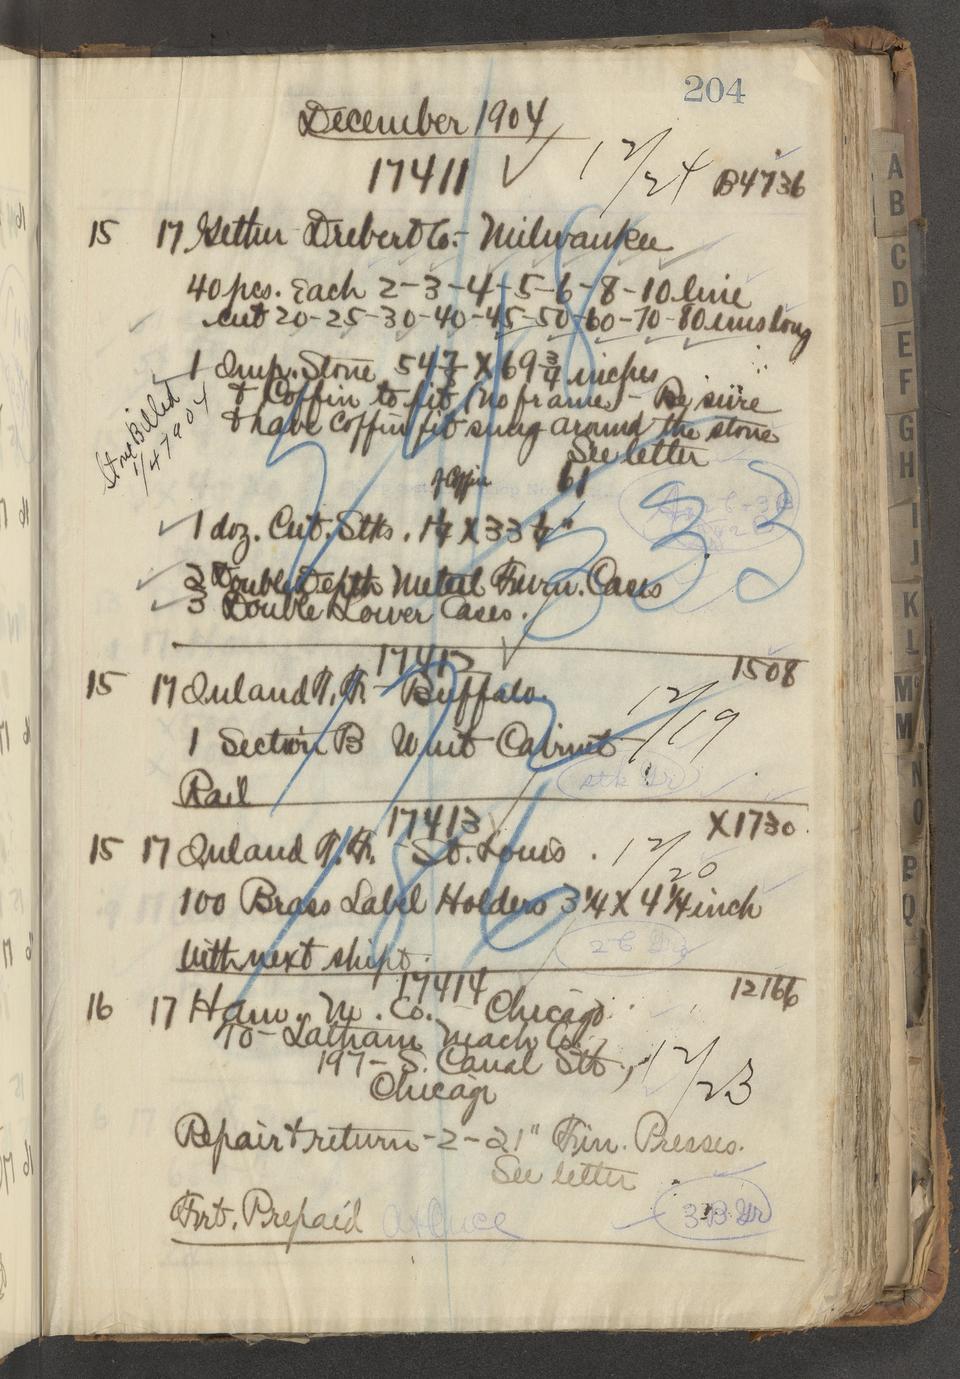 204
December 1904
17411 12/24 B4736
15 17 Gether Drebert Co. - Milwaukee
40 pcs. Each 2-3-4-5-6-8-10 line
cut 20-25-30-40-45-50-60-70-80 ems long
1 Imp. Stone 54 7/8 X 69 3/4 inches
& Coffin to fit (no frame) - Be sure
& have coffin fit snug around the stone
See letter
Stone Billed
1/4 7904
of Coffin 61
1 doz. Cut. Stks. 1 1/4 X 33 1/2"
2 Double Depth Metal Furn. Cases
3 Double Lower Cases.
333
17412 1508
15 17 Inland T. F. - Buffalo 12/19
1 Section B Unit Cabinet
Rail
stk Yr
17413 X1730
15 17 Inland T. F. St. Louis. 12/20
100 Brass Label Holders 3 1/4 X 4 1/4 inch
With next shipt.
17414 12166
16 17 Ham. M. Co. - Chicago
To - Latham Mach Co.
197 - S. Canal Stt, 12/23
Chicago
Repair & return - 2 - 21" Fin. Presses.
See letter
Frt. Prepaid At Once 3 B Yr
A
B
C
D
E
F
G
H
I
J
K
L
Mc
M
N
O
P
Q